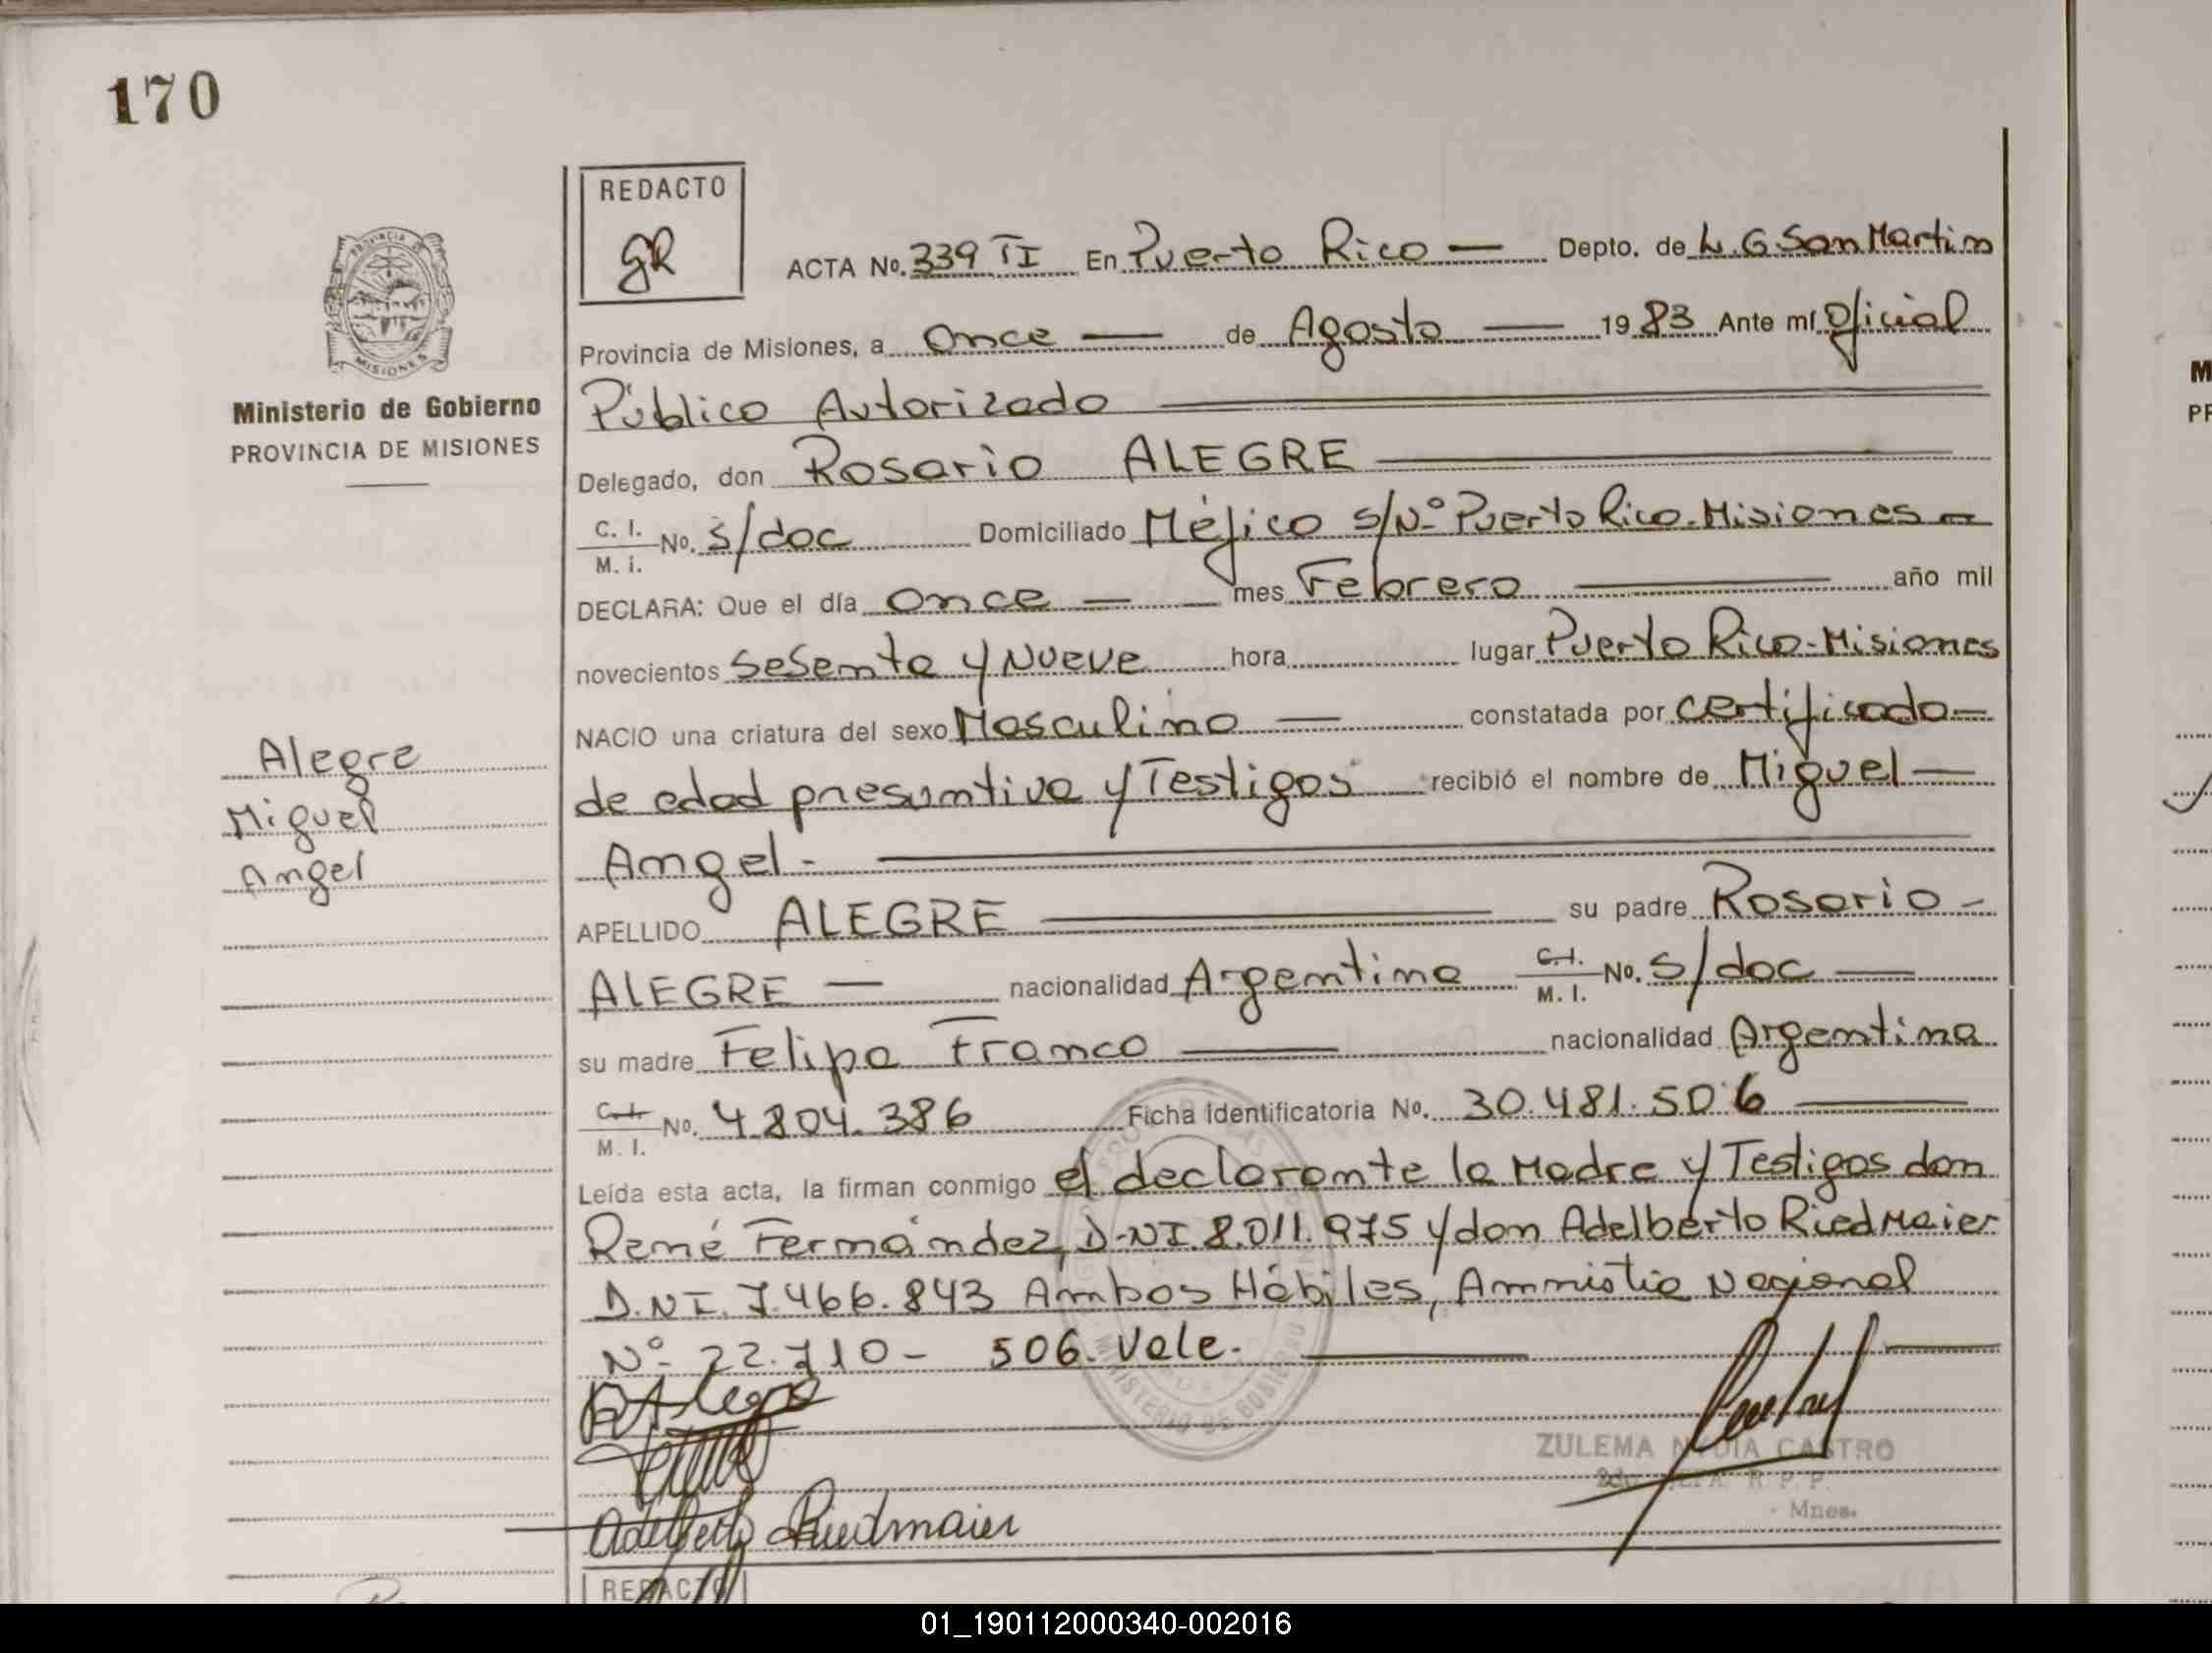 170
REDACTO
gR
ACTA No. 339 TI En Puerto Rico — Depto. de L.G. San Martin
Provincia de Misiones, a Once — de Agosto — 1983 Ante mí Oficial
Público Autorizado
Delegado, don Rosario ALEGRE
C. I. / M. I. No. s/doc Domiciliado Méjico s/Nº Puerto Rico-Misiones —
DECLARA: Que el día once — mes Febrero — año mil
novecientos Sesenta y Nueve hora lugar Puerto Rico-Misiones
NACIO una criatura del sexo Masculino — constatada por certificado —
de edad presuntiva y Testigos recibió el nombre de Miguel —
Angel -
APELLIDO ALEGRE — su padre Rosario -
ALEGRE — nacionalidad Argentina C.I. / M. I. No. s/doc —
su madre Felipa Franco — nacionalidad Argentina
C.I. / M. I. No. 4.804.386 Ficha Identificatoria No. 30.481.506 —
Leída esta acta, la firman conmigo el declarante la Madre y Testigos don
René Fernández, D.NI. 8.011.975 y don Adelberto Riedmaier
D.NI. 7.466.843 Ambos Hábiles, Amnistia Nacional
Nº 22.710 - 506. Vale.
Adelberto Riedmaier
ZULEMA CASTRO
R. P. P.
- Mnes.
REDACTO
PROVINCIA DE
MISIONES
Ministerio de Gobierno
PROVINCIA DE MISIONES
Alegre
Miguel
Angel
MINISTERIO DE GOBIERNO
M
PR
01_190112000340-002016